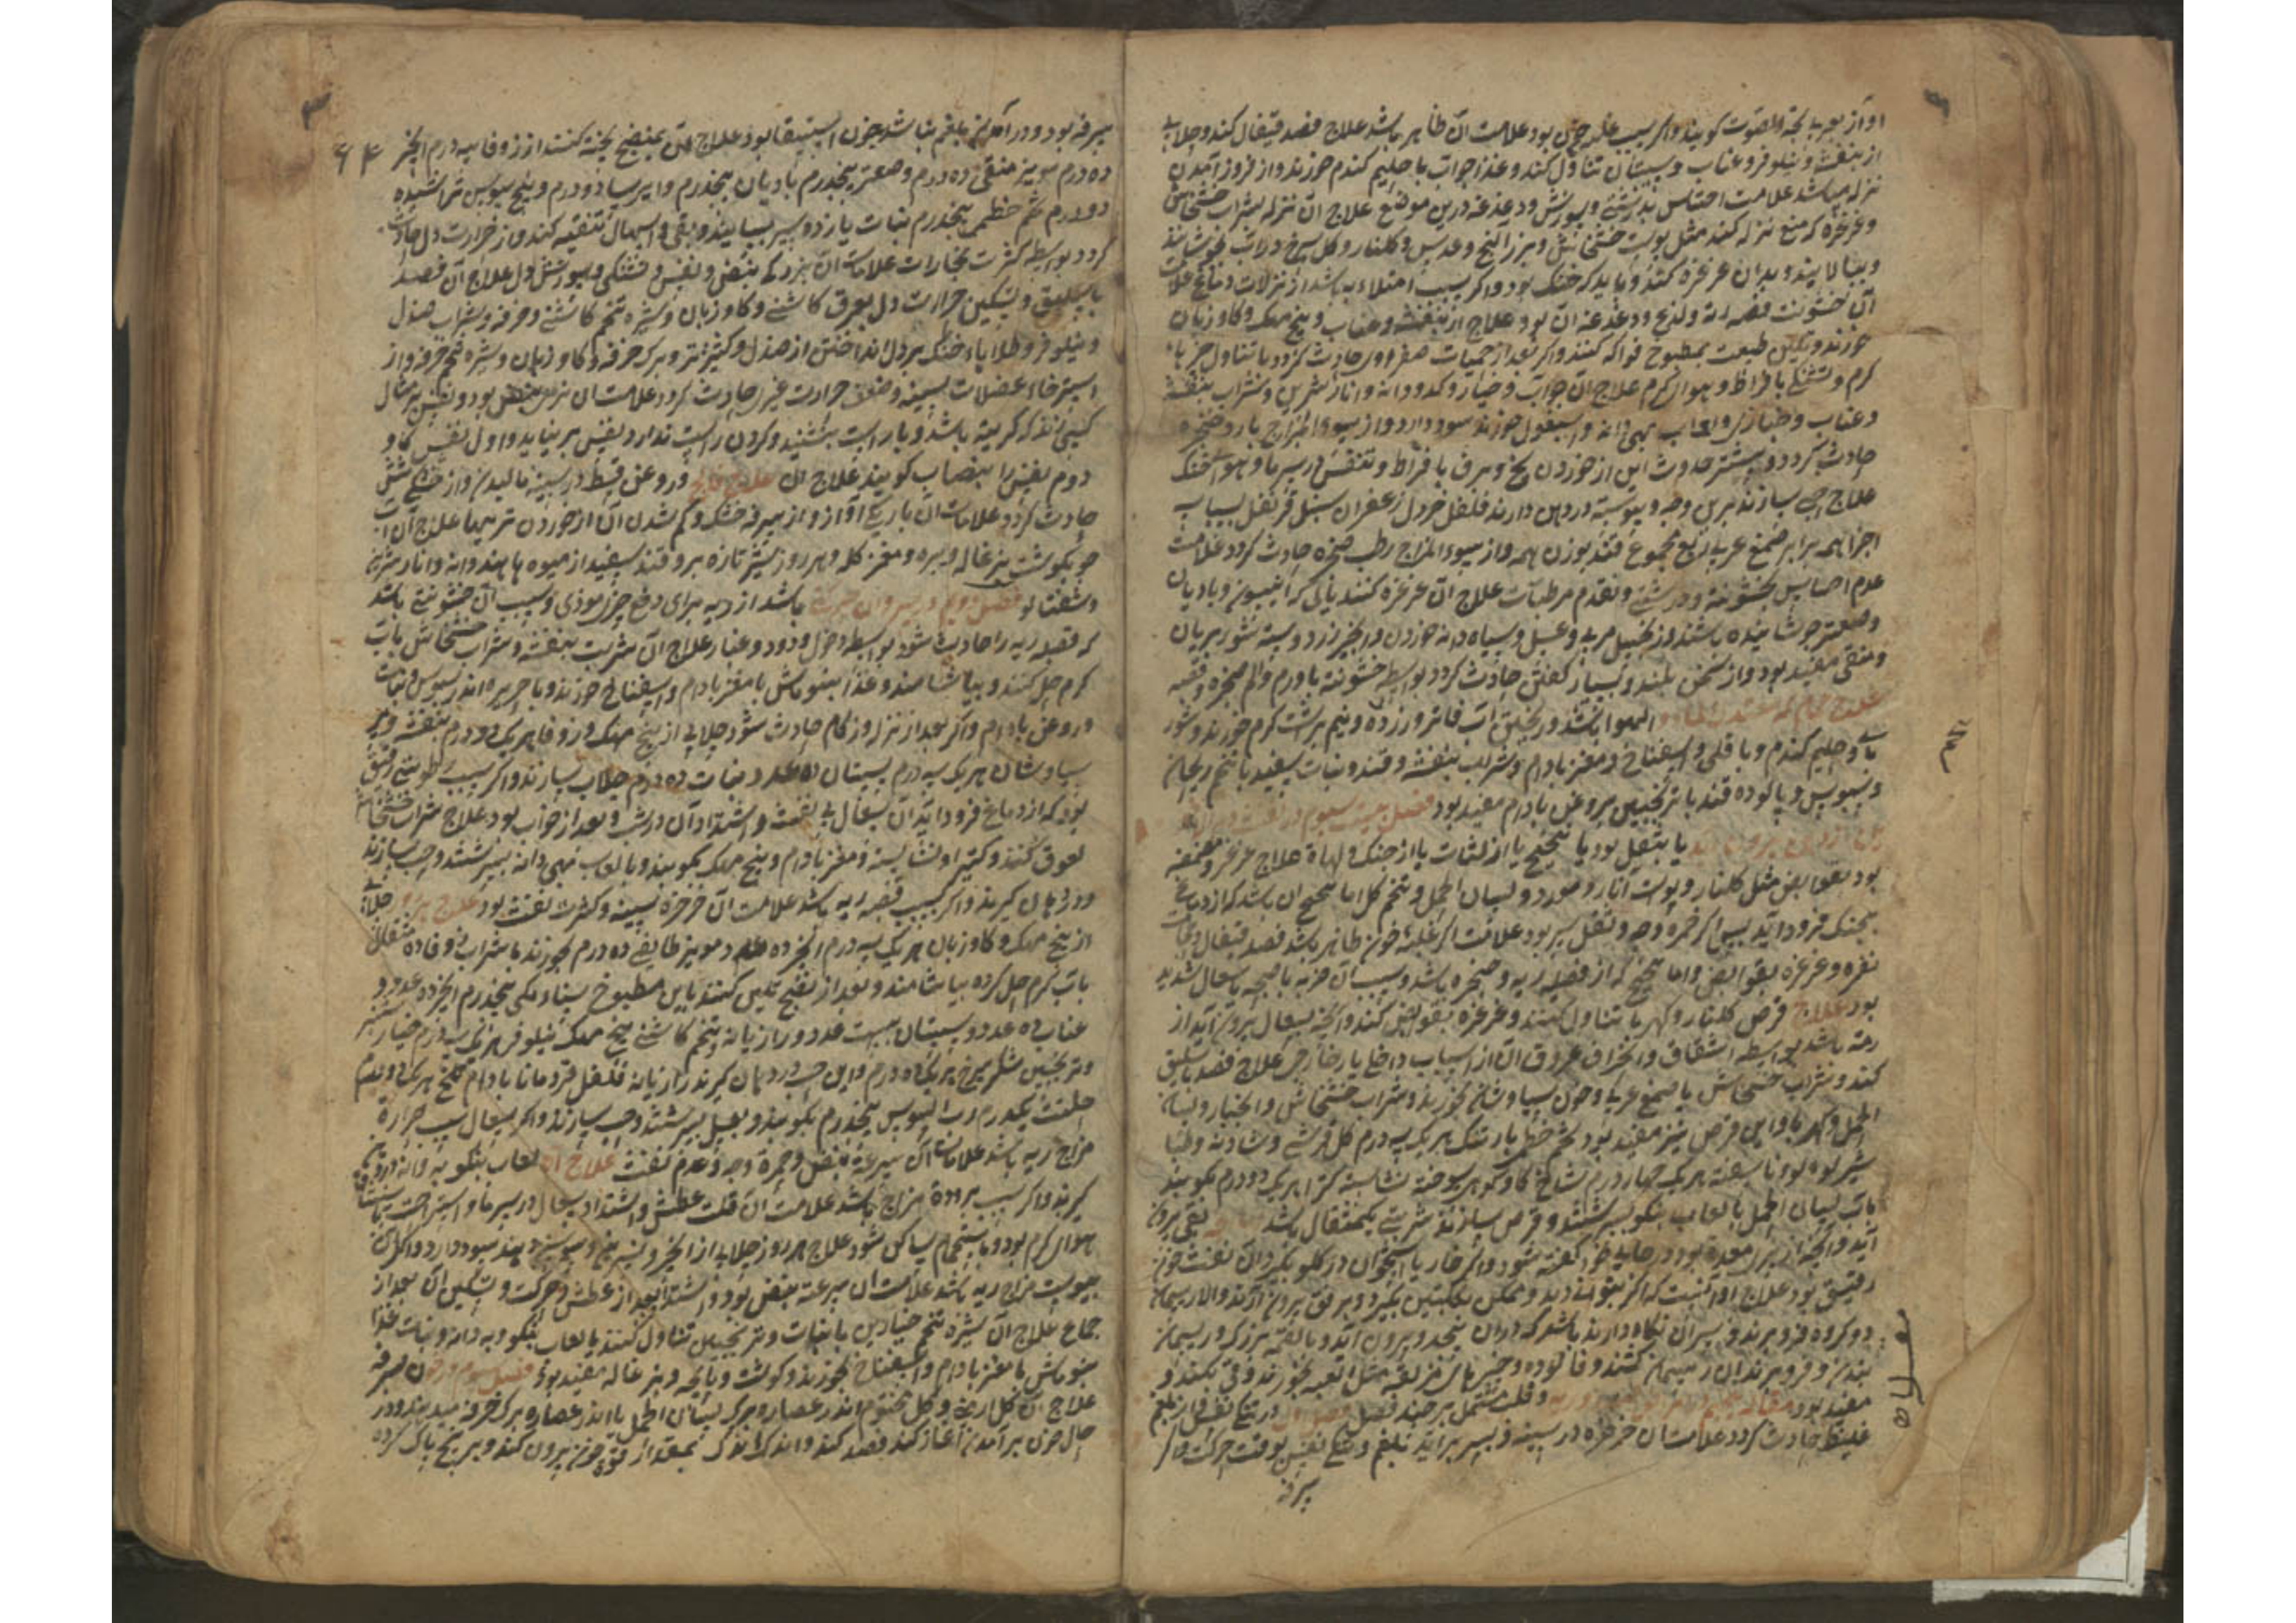 او آواز بعربی بحة الصوت کویند و اکر سبب غلبه خون بود علامت آن ظاهر باشد علاج فصد قیفال کند و جلاب
از بنفشه و نیلوفر و عناب و سپستان تناول کند و غذا جواب با حلیم کندم خورند و از فرود آمدن
نزله باشد علامت احساس بدرشتی و سوزش و دغدغه درین موضع علاج آن نزله بشراب خشخاش
و غرغره که منع نزله کند مثل پوست خشخاش و بزر البنج و عدس و کلنار و کل سرخ در آب بجوشانند
و بپالایند و بدان غرغره کنند و باید که خنک بود و اکر بسبب امتلاء باشد از نزلات دماغ علامت
آن خشونت قصبه ریه و لذع و دغدغه آن بود علاج از بنفشه و عناب و بیخ مهک و کاو زبان
خورند و تلیین طبیعت بمطبوخ فواکه کنند و اکر بعد از حمیات صفراوی حادث کردد یا تناول چیزهاء
کرم و تشنکی بافراط و هواء کرم علاج آن جواب و خیار و کدو و دانه و انار شیرین و شراب بنفشه
و عناب و خبازی و لعاب بهی دانه و اسبغول خورند سود دارد و از سوء المزاج بارد حنجره
حادث کردد و بیشتر حدوث این از خوردن یخ و برف بافراط و تنفس در سرما و هواء خنک
علاج حبی سازند برین وجه و پیوسته در دهن دارند فلفل خردل زعفران سنبل قرنفل
اجزا همه برابر صمغ عربی ربع مجموع قند بوزن همه و از سوء المزاج رطب حنجره حادث کردد علامت
عدم احساس بخشونت و درشتی و تقدم مرطبات علاج آن غرغره کنند بآبی که انیسون و بادیان
و صعتر جوشانیده باشند و زنجبیل مربی و عسل و سیاه دانه خوردن و انجیر زرد و پسته شور بریان
و منقی مفید بود و از سخن بلند و بسیار کفتن حادث کردد بواسطه خشونت یا ورم و الم حنجره و قصبه
الهوا باشد و ریختن آب فاتر و زرده و نیم برشت کرم خورند و شور
با و حلیم کندم و باقلی و اسفناخ و مغز بادام و شراب بنفشه و قند و نبات سفید با تخم ریحان
و سبوس و پالوده قند با ترنجبین بروغن بادام مفید بود فصل بیست سیوم در نفث
یا بتفل بود یا بتنحنح یا از لثات یا از حنک و لهاة علاج غرغره و مضمضه
بود بقوابض مثل کلنار و پوست انار و مورد و لسان الحمل و تخم کل اما تنحنح آن باشد که از دماغ
بحنک فرود آید پس اکر حمره وجه و ثقل سر بود علامت اکر غلبه خون ظاهر باشد فصد قیفال و حجامت
نقره و غرغره بقوابض و اما تنحنح که از قصبه ریه و حنجره باشد و سبب آن ضربه یا صیحه یا سعال شدید
بود علاج قرص کلنار و کهربا تناول کنند و غرغره بقوابض کند و آنچه بسعال بیرون آید از
ریه باشد بواسطه انشقاق و انحراف عروق آن از اسباب داخل یا خارجی علاج فصد باسلیق
کند و شراب خشخاش با صمغ عربی و خون سیاوشان خورند و شراب خشخاش و انجبار و لسان
الحمل و کهربا و این قرص نیز مفید بود تخم خطمی بارتنک هر یک سه درم کل قرشی و شادنه و طبا
شیر لولو ناسفته هر یک چهار درم شاخ کاو کوهی سوخته نشاسته کتیرا هر یک دو درم بکوبند
بآب لسان الحمل یا لعاب بنکو بسرشند و قرص سازند شربتی یکمثقال باشد بقی بیرون
آید و آنچه از بن معده بود در جای خود کفته شود و اکر خار یا استخوان در کلو بکیرد و آن نفث خون
رقیق بود علاج او آنست که اکر بتوانند دید و ممکن بکلبتین بکیرد و برفق بیرون آرند و الا ریسمان
دو کرده فرو برند و سر آن نکاه دارند باشد که در آن پیچد و بیرون آید و یا لقمه بزرک در ریسمان
بندند و فرو برند آن ریسمان کشند و فالوده و چیزهاء لزج لقمه مثل لعبه بخورند و قی نکند و
مفید بود مقاله و قلت مشتمل بر چند فصل در تنکی نفس از بلغم
غلیظ حادث کردد علامت آن خرخره در سینه و بسر براید بلغم و تنکی نفس بوقت حرکت و اکر
سرفه
۶۴
سرفه بود و در آمدن بلغم نباشد چون استسقا بود علاج آن بمنضج پخته کنند از زوفا سه درم انجیر
ده درم مویز منقی ده درم و صعتر پنجدرم بادیان پنجدرم و ایرسا دو درم و بیخ سوس تراشیده
دو درم تخم خطمی پنجدرم نبات یازده سیر بسایند و بقی و اسهال تنقیه کند و از حرارت دل حادث
کردد بواسطه کثرت بخارات علامات آن بزرکی نبض و نفس و تشنکی و سوزش دل علاج آن فصد
باسلیق و تسکین حرارت دل بعرق کاسنی و کاو زبان و شیره تخم کاسنی و خرفه و شراب صندل
و نیلوفر و طلاء خنک بر دل انداختن از صندل و کشنیز تر و برک خرفه و کاو زبان و شیره تخم خرفه و از
استرخاء عضلات سینه و ضعف حرارت غریزی حادث کردد علامت آن نرمی نبض بود و نفس بر مثال
کسی زند که کریسته باشد و تا راست ننشیند و کردن راست ندارد نفس برنیاید و اول نفس کاو
دوم نفس را انتصاب کویند علاج آن علاج فالج و روغن قسط در سینه مالیدن و از خشکی شش
حادث کردد علامات آن باریکی آواز و از سرفه خشک و کم شدن آن از خوردن تریها علاج آن
جو بکوشت بزغاله و بره و مغز کله و هر روز شیر تازه بز و قند سفید از میوه ها هندوانه و انار شیرین
و شفتالو فصل دویم در سرفه و آن حرکتی باشد از ریه برای دفع چیز موذی و سبب آن خشونتی باشد
که قصبه ریه را حادث شود بواسطه دخول دود و غبار علاج آن شربت بنفشه و شراب خشخاش بآب
کرم حل کنند و بیاشامند و غذا بنو ماش با مغز بادام و اسفناخ خورند و یا حریره از سبوس و نبات
و روغن بادام و اکر بعد از نزله و زکام حادث شود جلابی از بیخ مهک و زوفا هر یک دو درم بنفشه و پر
سیاوشان هر یک سه درم سپستان ده عدد نبات ده درم جلاب سازند و اکر بسبب رطوبتی رقیق
بود که از دماغ فرود آید آن سعال بی نفث و اشتداد آن در شب و بعد از خواب بود علاج شراب خشخاش
لعوق کنند و کتیرا و نشاسته و مغز بادام و بیخ مهک بکوبند و با لعاب بهی دانه بسرشند و حب سازند
و در دهان کیرند و اکر بسبب قصبه ریه باشد علامت آن خرخره سینه و کثرت نفث بود علاج جلاب
از بیخ مهک و کاو زبان هر یک سه درم انجیر ده عدد مویز طایفی ده درم بخورند با شراب زوفا ده مثقال
بآب کرم حل کرده بیاشامند و بعد از نضج تلیین کنند باین مطبوخ سناء مکی پنجدرم انجیر ده عدد و
عناب ده عدد و سپستان بیست عدد و رازیانه و تخم کاسنی بیخ مهک نیلوفر هر یک سه درم خیار شنبر
و ترنجبین شکر سرخ هر یک ده درم و این حب در دهان کیرند رازیانه فلفل قردمانا بادام تلخ هر یک دو درم
حلتیت یکدرم رب السوس پنجدرم بکوبند و بعسل بسرشند و حب سازند و اکر سعال بسبب حرارة
مزاج ریه باشد علامات آن سرعة نبض و حمرة وجه و عدم نفث علاج آن لعاب بنکو به دانه
کیرند و اکر بسبب برودة مزاج باشد علامت آن قلت عطش و اشتداد سعال در سرما و استراحت
هواء کرم بود و باستحمام ساکن شود علاج هر روز جلابی از انجیر و سوسن دهند سود دارد و اکر از
یبوست مزاج ریه باشد علامت آن سرعة نبض بود و اشتداد بعد از عطش و حرکت و تسکین آن بعد از
جماع علاج آن شیره تخم خیارین با نبات و ترنجبین تناول کنند یا لعاب بنکو و به دانه و نبات غذا
بنو ماش با مغز بادام و اسفناخ بخورند و کوشت و پایچه و بزغاله مفید بود فصل سوم در خون سرفه
علاج آن کل ارمنی و کل مختوم اندر عصاره برک لسان الحمل یا اندر عصاره برک خرفه میدهند و در
حال خون برآمدن آغاز کند فصد کند و اندک اندک بمقدار قوة خون بیرون کند و برنج پاک کرده